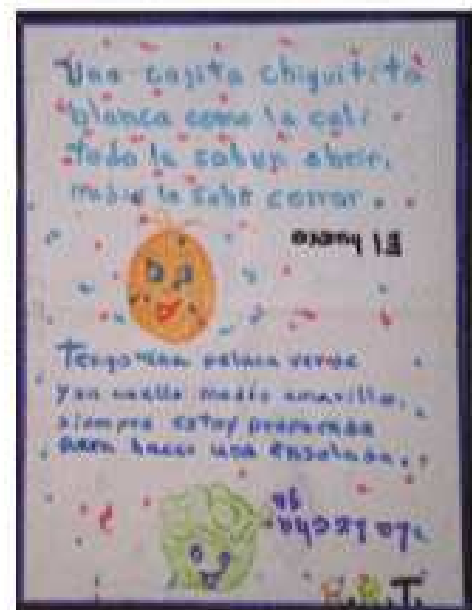 Una cajita chiquitita
blanca como la cal:
todo la saben abrir,
nadie la sabe cerrar.
El huevo
Tengo una peluca verde
y un cuello medio amarillo,
siempre estoy preparada
para hacer una ensalada.